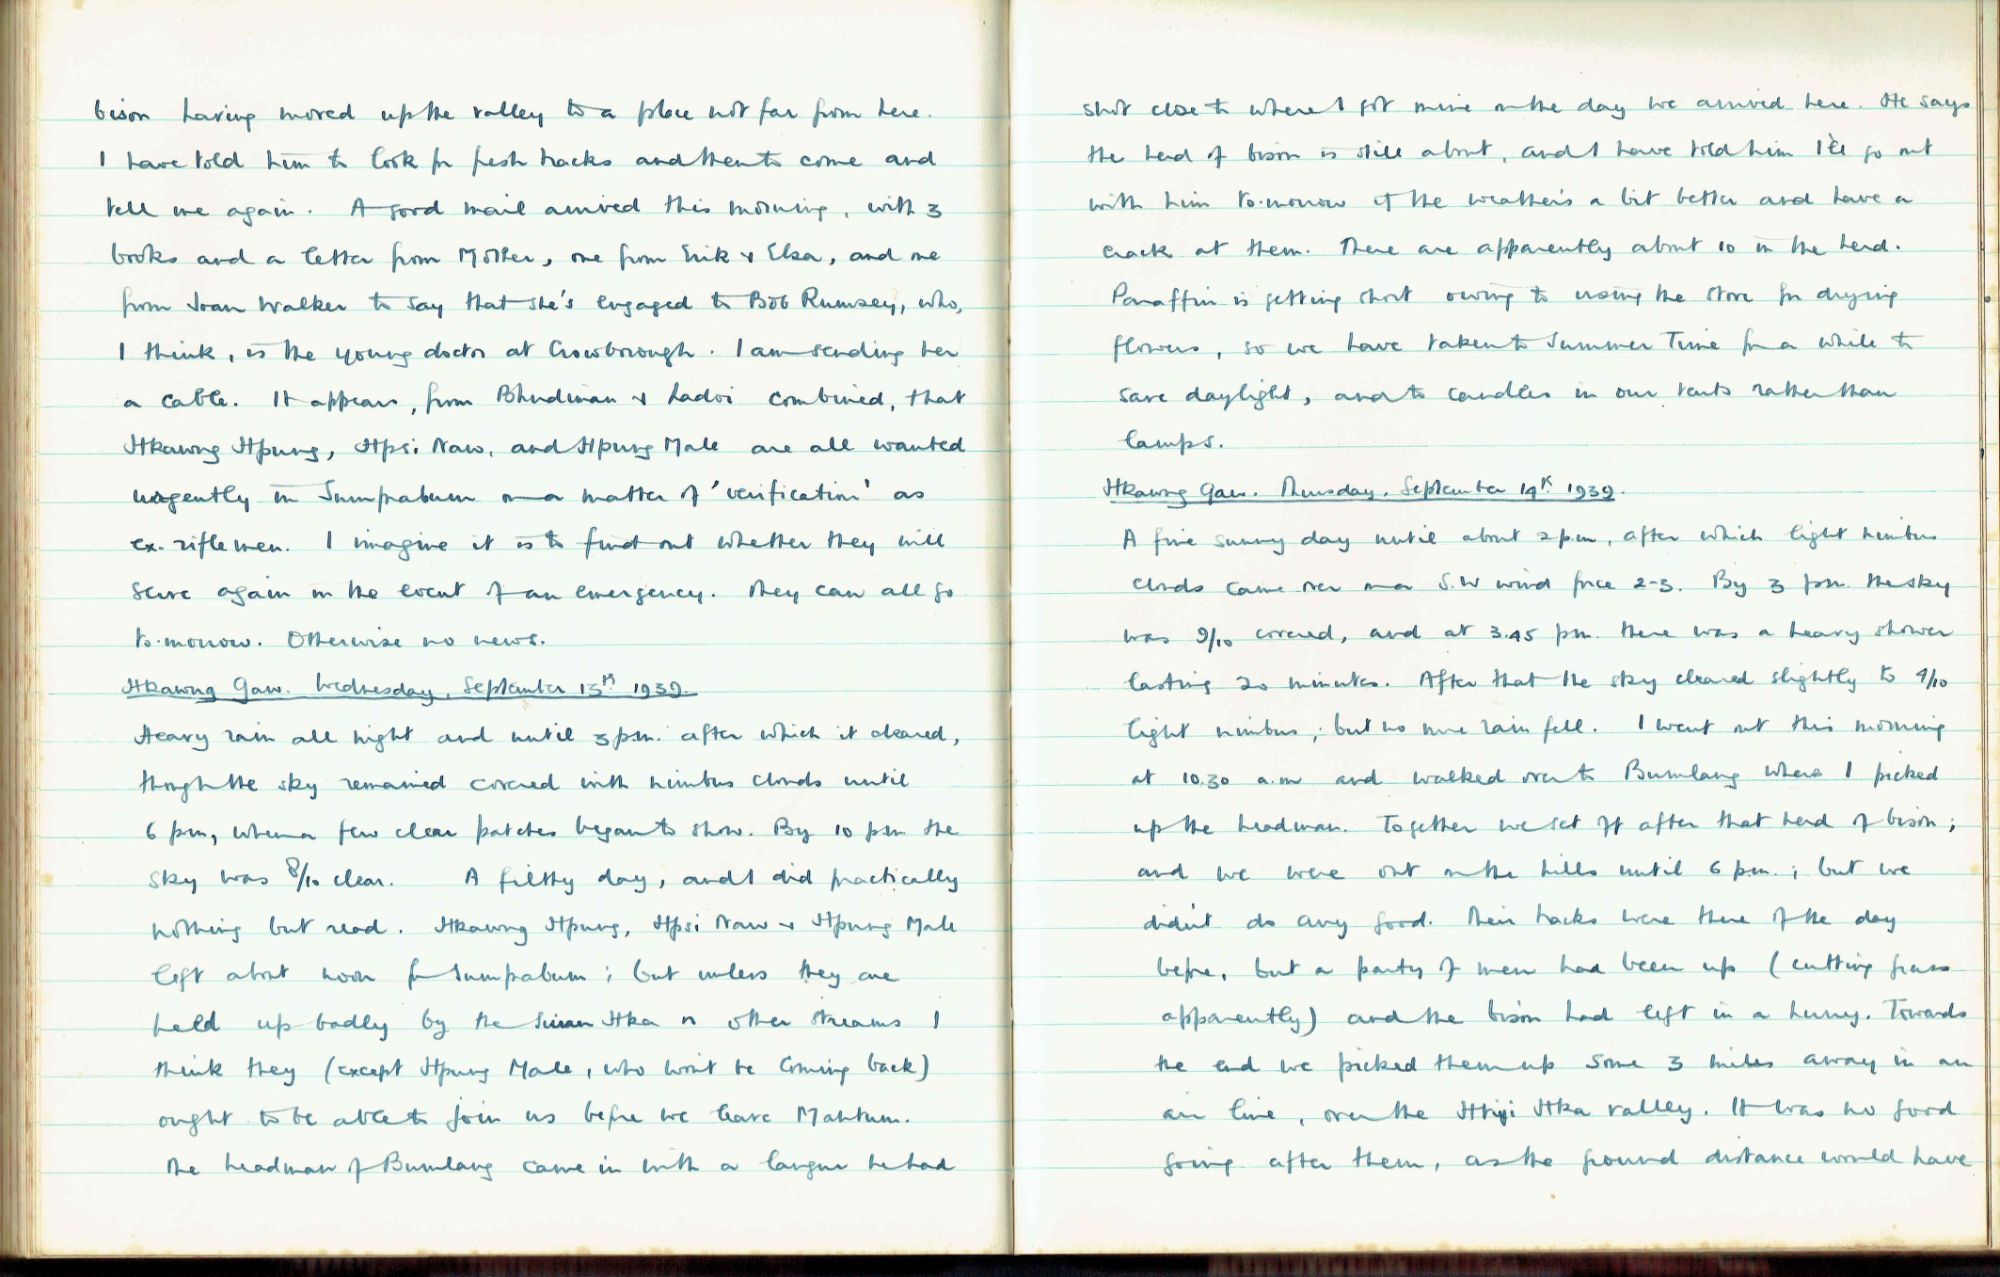 bison having moved up the valley to a place not far from here.
I have told him to look for fresh tracks and then to come and
tell me again. A good mail arrived this morning, with 3
books and a letter from Mother, one from Erik & Elsa, and one
from Joan Walker to say that she's engaged to Bob Rumsey, who,
I think, is the young doctor at Crowborough. I am sending her
a cable. It appears, from Bhudiman & Ladoi combined, that
Hkawng Hpung, Hpsi Naw, and Hpung Male are all wanted
urgently in Sumprabum on a matter of 'verification' as
ex-riflemen. I imagine it is to find out whether they will
serve again in the event of an emergency. They can all go
to-morrow. Otherwise no news.
Hkawng Gaw. Wednesday, September 13th 1939.
Heavy rain all night and until 3 pm. after which it cleared,
though the sky remained covered with nimbus clouds until
6 pm, when a few clear patches began to show. By 10 pm the
sky was 8/10 clear. A filthy day, and I did practically
nothing but read. Hkawng Hpung, Hpsi Naw & Hpung Male
left about noon for Sumprabum; but unless they are
held up badly by the Hka or other streams I
think they (except Hpung Male, who won't be coming back)
ought to be able to join us before we leave Mahtum.
The headman of Bumlang came in with a langur he had
shot close to where I got mine on the day we arrived here. He says
the herd of bison is still about, and I have told him I'll go out
with him to-morrow if the weather's a bit better and have a
crack at them. There are apparently about 10 in the herd.
Paraffin is getting short owing to using the stove for drying
flowers, so we have taken to Summer Time for a while to
save daylight, and to candles in our tents rather than
lamps.
Hkawng Gaw. Thursday, September 14th 1939.
A fine sunny day until about 2 p.m, after which light nimbus
clouds came over on a S.W wind force 2-3. By 3 pm. the sky
was 9/10 covered, and at 3.45 pm. there was a heavy shower
lasting 20 minutes. After that the sky cleared slightly to 4/10
light nimbus; but no more rain fell. I went out this morning
at 10.30 a.m and walked over to Bumlang where I picked
up the headman. Together we set off after that herd of bison;
and we were out on the hills until 6 pm.; but we
didn't do any good. Their tracks were there of the day
before, but a party of men had been up (cutting grass
apparently) and the bison had left in a hurry. Towards
the end we picked them up some 3 miles away in an
air line, over the Hka valley. It was no good
going after them, as the ground distance would have